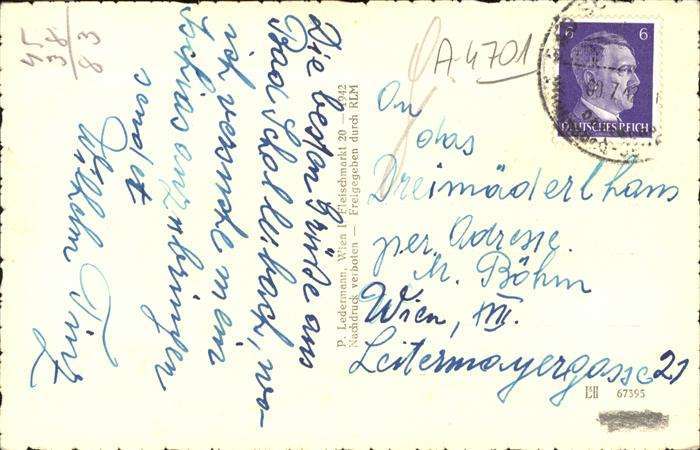 45
38
83
A 4701
6 6
DEUTSCHES REICH
Die besten Grüße aus
Bad Schallerbach, wo
ich versuche mein
anzubringen
sendet
Wilhelm
P. Ledermann, Wien I Fleischmarkt 20 — 1942
Nachdruck verboten — Freigegeben durch RLM
An
das
Dreimäderlhaus
per Adresse.
M. Böhm
Wien, XVII.
Leitermayergasse 21
67395